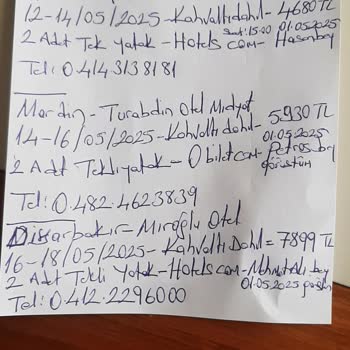 12-14/05/2025-Kahvaltı dahil- 4680 TL
Saat:15:00 01.05.2025
2 Adet Tek yatak-Hotels com- Hasanbey
Tel: 0.414.3138181
Mardin- Turabdin Otel Midyat
14-16/05/2025-Kahvaltı dahil- 5.930 TL
01.05.2025
2 Adet Tekli yatak- Obilet com- Petros bey
görüştüm
Tel: 0.482.4623839
Diyarbakır- Miroğlu Otel
16-18/05/2025-Kahvaltı Dahil= 7899 TL
2 Adet Tekli Yatak-Hotels com-Mehmet Ali bey
01.05.2025
Tel: 0.412.2296000